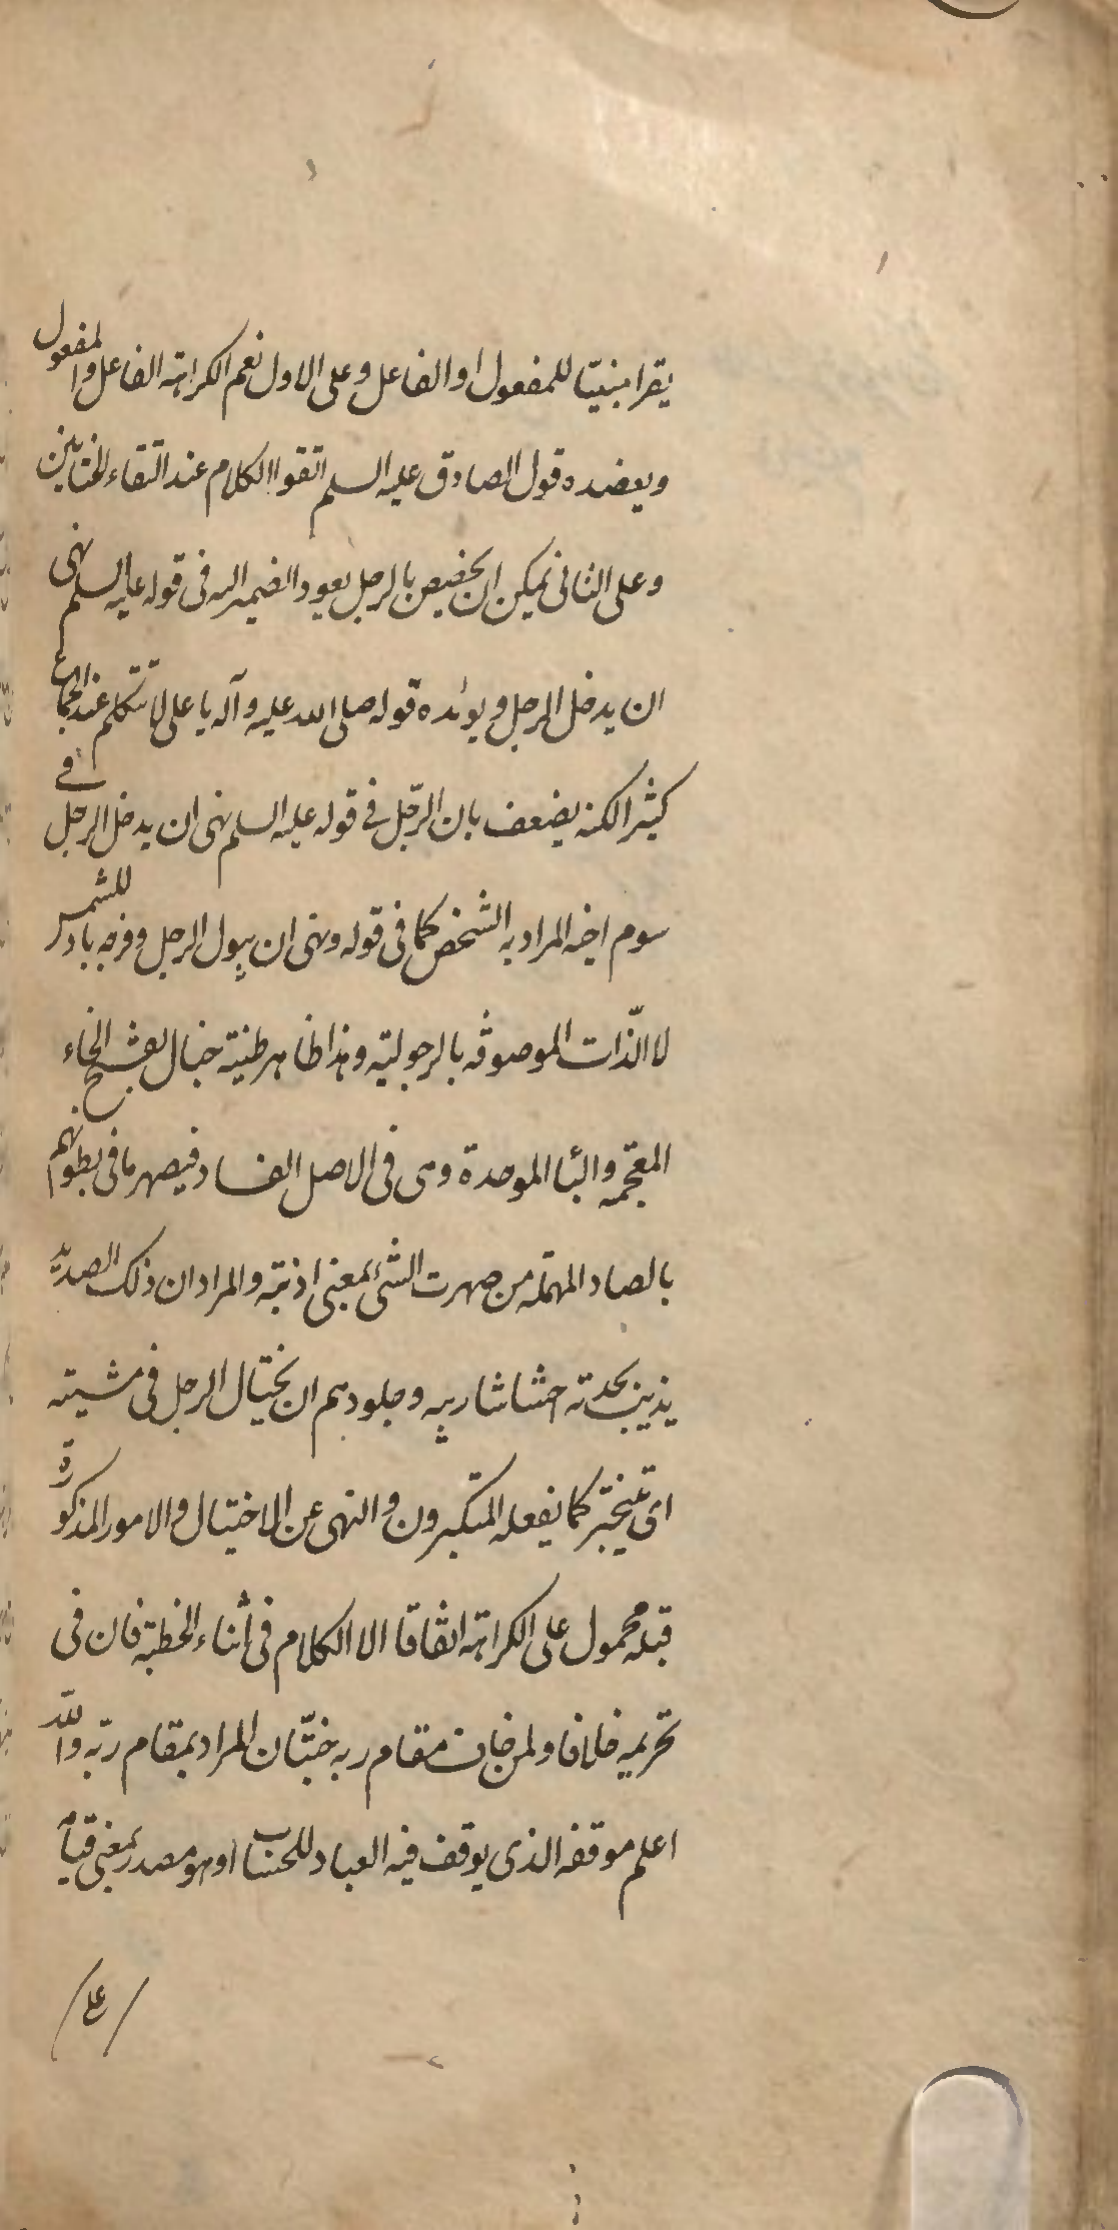 يقرا مبنيّا للمفعول او الفاعل وعلى الاول تعم الكراهة الفاعل والمفعول
ويعضده قول الصادق عليه السلم اتقوا الكلام عند التقاء الختانين
وعلى الثاني يمكن ان يخصيص بالرجل بعود الضمير اليه في قوله عليه السلم نهى
ان يدخل الرجل ويؤيده قوله صلى الله عليه وآله يا على لا تتكلم عند الجماع
كثيرا لكنه يضعف بان الرّجل في قوله عليه السلم نهى ان يدخل الرجل في
سوم اخيه المراد به الشخص كما في قوله ونهى ان يبول الرجل وفرجه باد للشمس
لا الذّات الموصوفه بالرجولية وهذا ظاهر طينة خبال بفتح الخاء
المعجمه والبا الموحدة وهى في الاصل الفساد فيصهر ما في بطونهم
بالصاد المهمله من صهرت الشئ بمعنى اذبته والمراد ان ذلك الصديد
يذيب بحدته احشا شاربيه وجلودهم ان يختال الرجل في مشيته
اى يتبختر كما يفعله المتكبرون والنهى عن الاختيال والامور المذكورة
قبله محمول على الكراهة اتفاقا الا الكلام في أثناء الخطبة فان في
تحريمه خلافا ولمن خاف مقام ربه جنّتان المراد بمقام ربّه والله
اعلم موقفه الذى يوقف فيه العباد للحساب او هو مصدر بمعنى قيامه
على